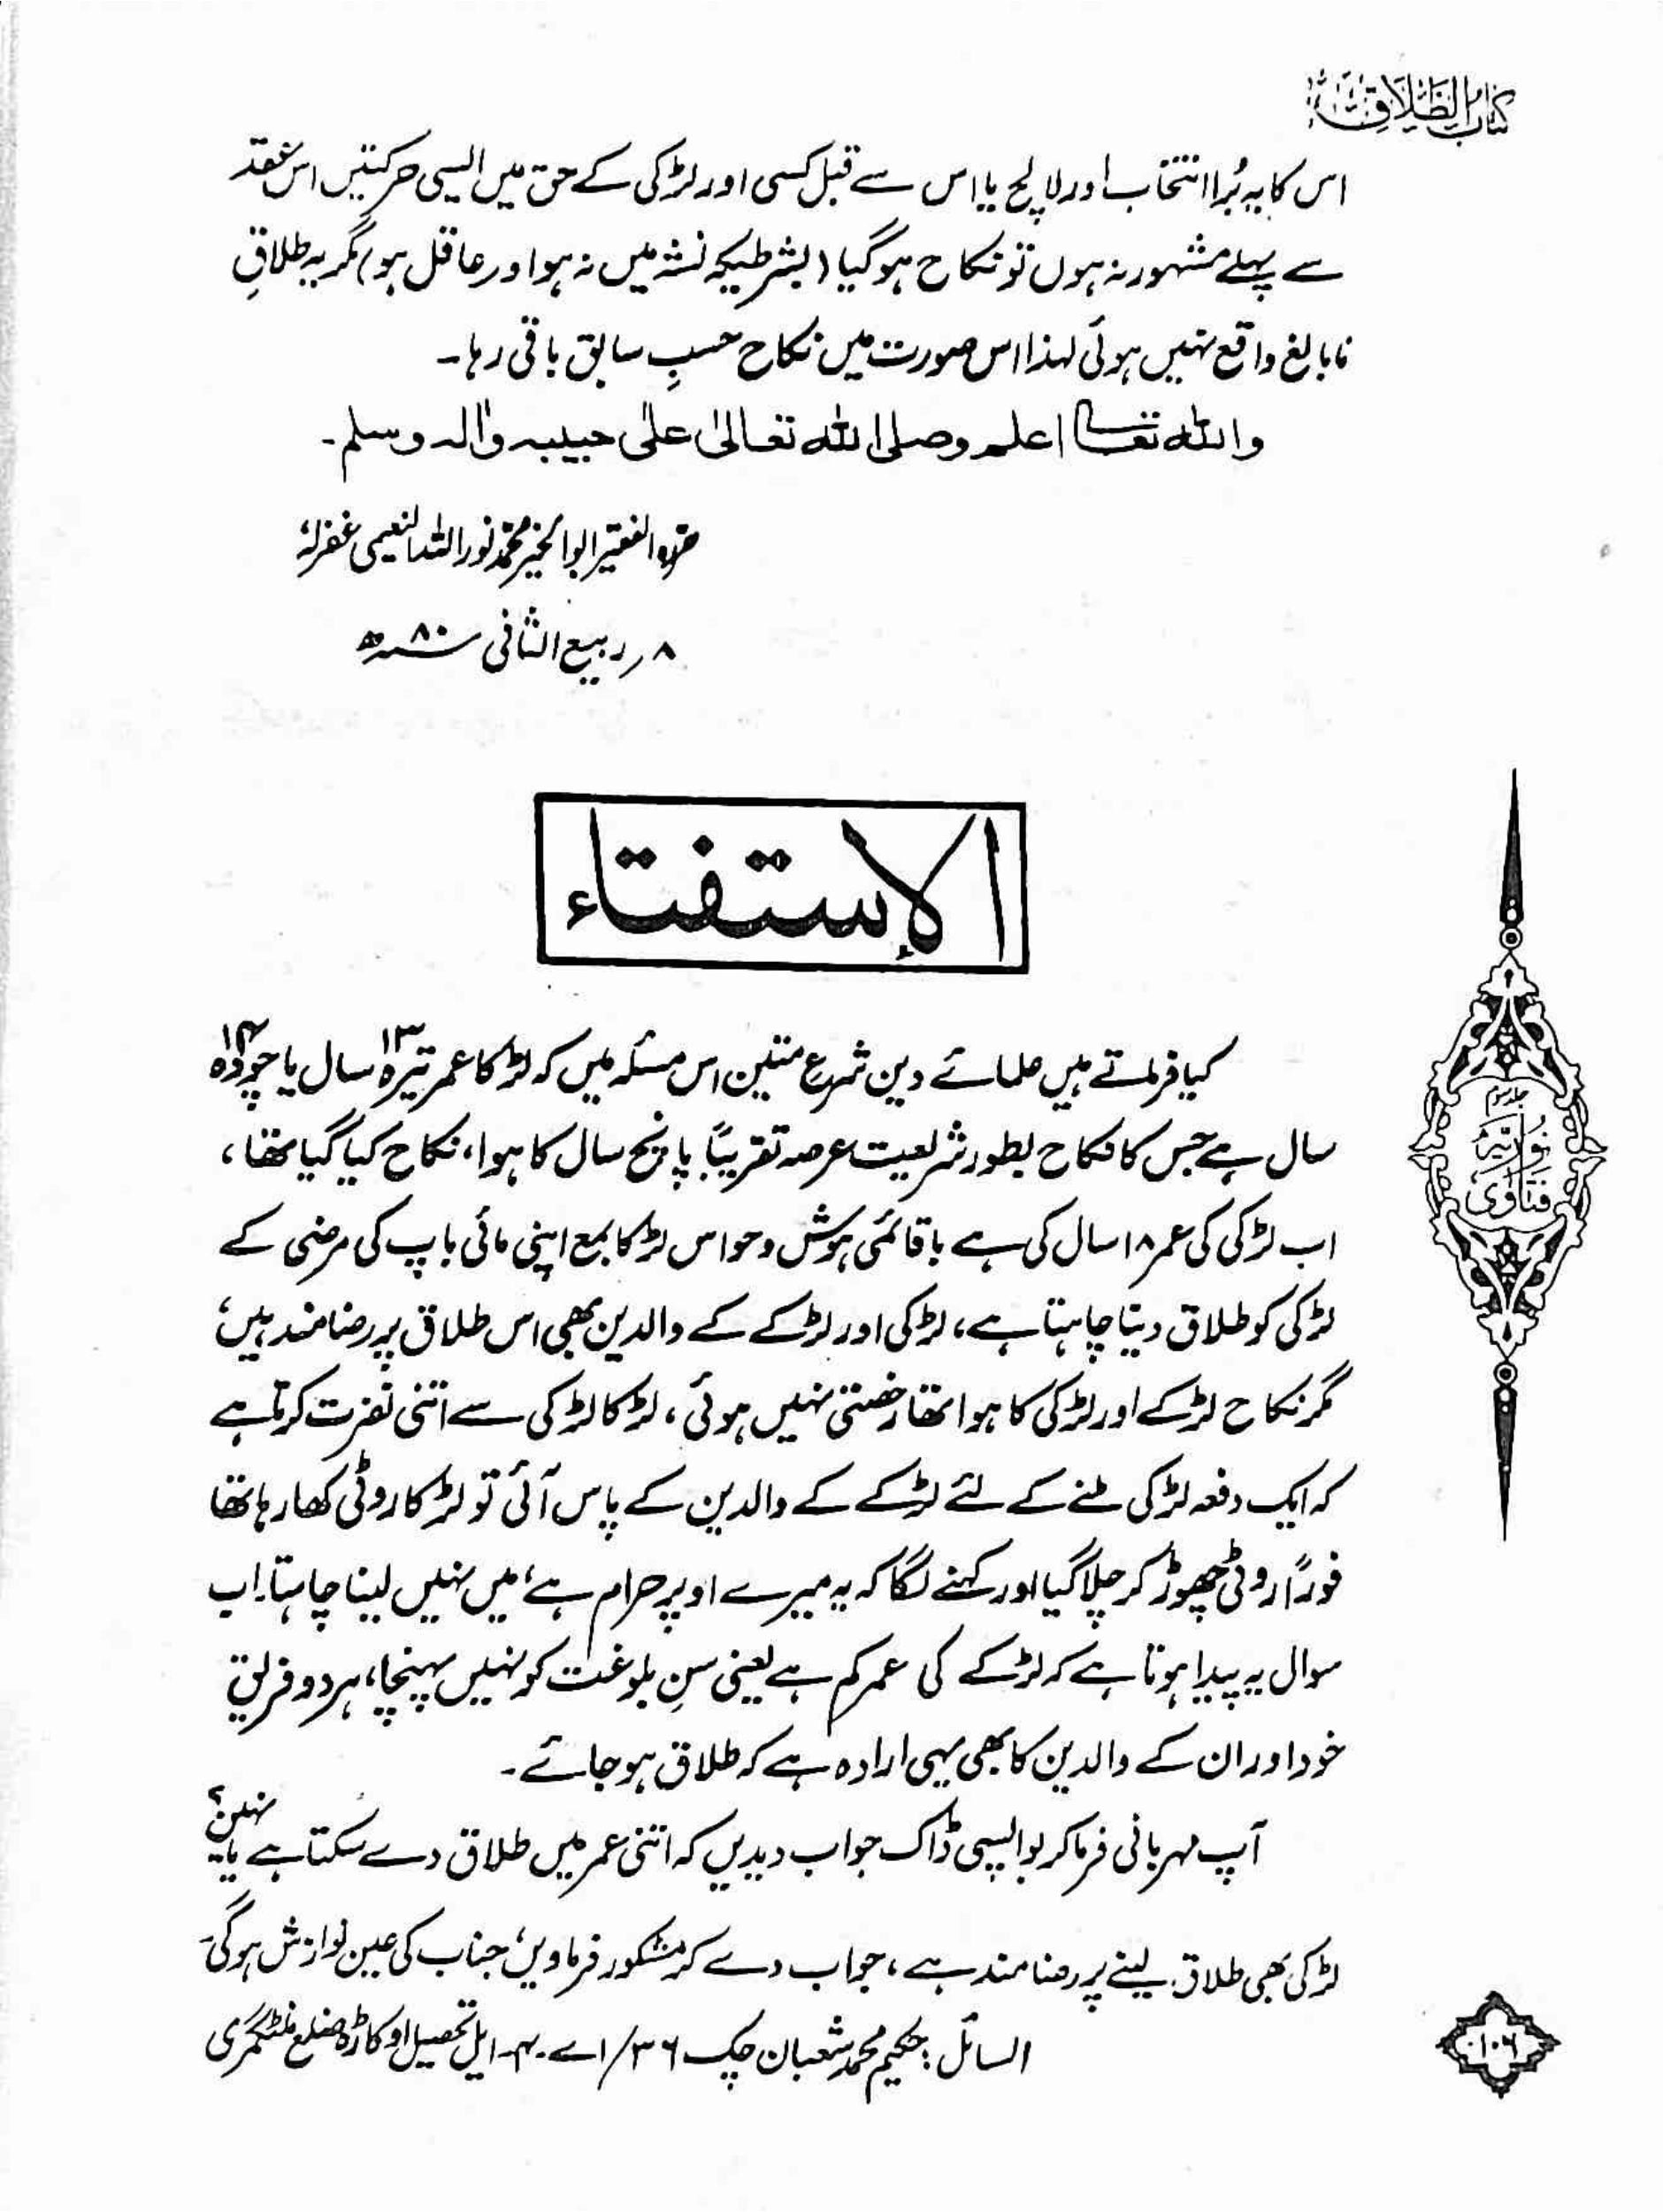 کتاب الطلاق
اس کا یہ بُرا انتخاب اور لالچ یا اس سے قبل کسی اور لڑکی کے حق میں ایسی حرکتیں اس عقد
سے پہلے مشہور نہ ہوں تو نکاح ہو گیا (بشرطیکہ نشہ میں نہ ہو اور عاقل ہو) مگر یہ طلاقِ
نابالغ واقع نہیں ہوئی لہذا اس صورت میں نکاح حسبِ سابق باقی رہا۔
واللہ تعالیٰ اعلم وصلی اللہ تعالیٰ علیٰ حبیبہ واٰلہ وسلم۔
حررہ الفقیر ابوالخیر محمد نور اللہ النعیمی غفرلہٗ
۸؍ ربیع الثانی ۸۰ھ
الاستفتاء
کیا فرماتے ہیں علمائے دین شرع متین اس مسئلہ میں کہ لڑکا عمر تیرہ ۱۳ سال یا چودہ ۱۴
سال ہے جس کا نکاح بطور شریعت عرصہ تقریباً پانچ سال کا ہوا، نکاح کیا گیا تھا،
اب لڑکی کی عمر ۱۸ سال کی ہے باقائمی ہوش و حواس لڑکا بمع اپنی مائی باپ کی مرضی کے
لڑکی کو طلاق دینا چاہتا ہے، لڑکی اور لڑکے کے والدین بھی اس طلاق پر رضامند ہیں،
مگر نکاح لڑکے اور لڑکی کا ہوا تھا رخصتی نہیں ہوئی، لڑکا لڑکی سے اتنی نفرت کرتا ہے
کہ ایک دفعہ لڑکی ملنے کے لئے لڑکے کے والدین کے پاس آئی تو لڑکا روٹی کھا رہا تھا
فوراً روٹی چھوڑ کر چلا گیا اور کہنے لگا کہ یہ میرے اوپر حرام ہے، میں نہیں لینا چاہتا۔ اب
سوال یہ پیدا ہوتا ہے کہ لڑکے کی عمر کم ہے یعنی سنِ بلوغت کو نہیں پہنچا، ہر دو فریق
خود اور ان کے والدین کا بھی یہی ارادہ ہے کہ طلاق ہو جائے۔
آپ مہربانی فرما کر بواپسی ڈاک جواب دیدیں کہ اتنی عمر میں طلاق دے سکتا ہے یا نہیں؟
لڑکی بھی طلاق لینے پر رضامند ہے، جواب دے کر مشکور فرماویں، جناب کی عین نوازش ہوگی۔
السائل: حکیم محمد شعبان چک ۳۶/۱ے۔۴۔ایل تحصیل اوکاڑہ ضلع منٹگمری
جلد سوم
فتاویٰ نوریہ
۱۰۶